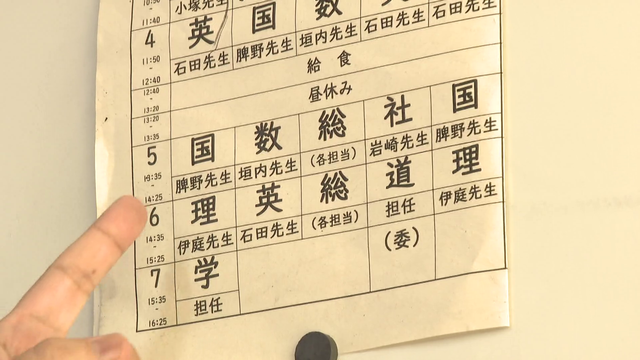 10:50
11:40
小塚先生
4 英 国 数 英
11:50
12:40
石田先生 脾野先生 垣内先生 石田先生 石田先生
給 食
12:40
13:20
昼休み
13:20
13:35
5 国 数 総 社 国
13:35
14:25
脾野先生 垣内先生 (各担当) 岩崎先生 脾野先生
6 理 英 総 道 理
14:35
15:25
伊庭先生 石田先生 (各担当) 担任 伊庭先生
7 学 (委)
15:35
16:25
担任